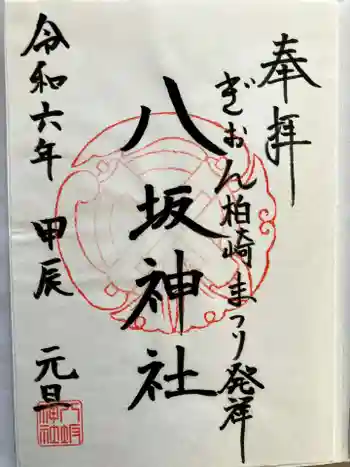 奉拝
ぎおん柏崎まつり発祥
八坂神社
令和六年 甲辰 元旦
八坂神社